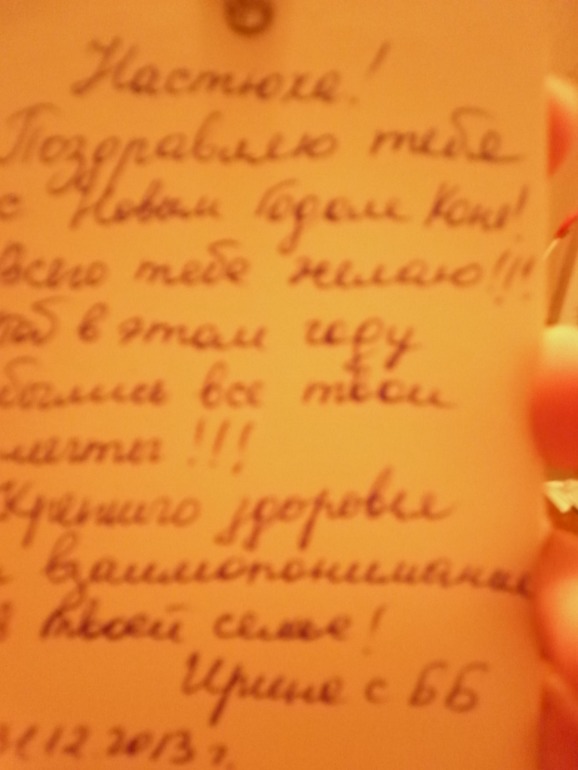 Настюха!
Поздравляю тебя
с Новым Годом Коня!
Всего тебе желаю!!!
Чтоб в этом году
сбылись все твои
мечты!!!
Крепкого здоровья
и взаимопонимания
в твоей семье!
Ирина с ББ
31.12.2013 г.